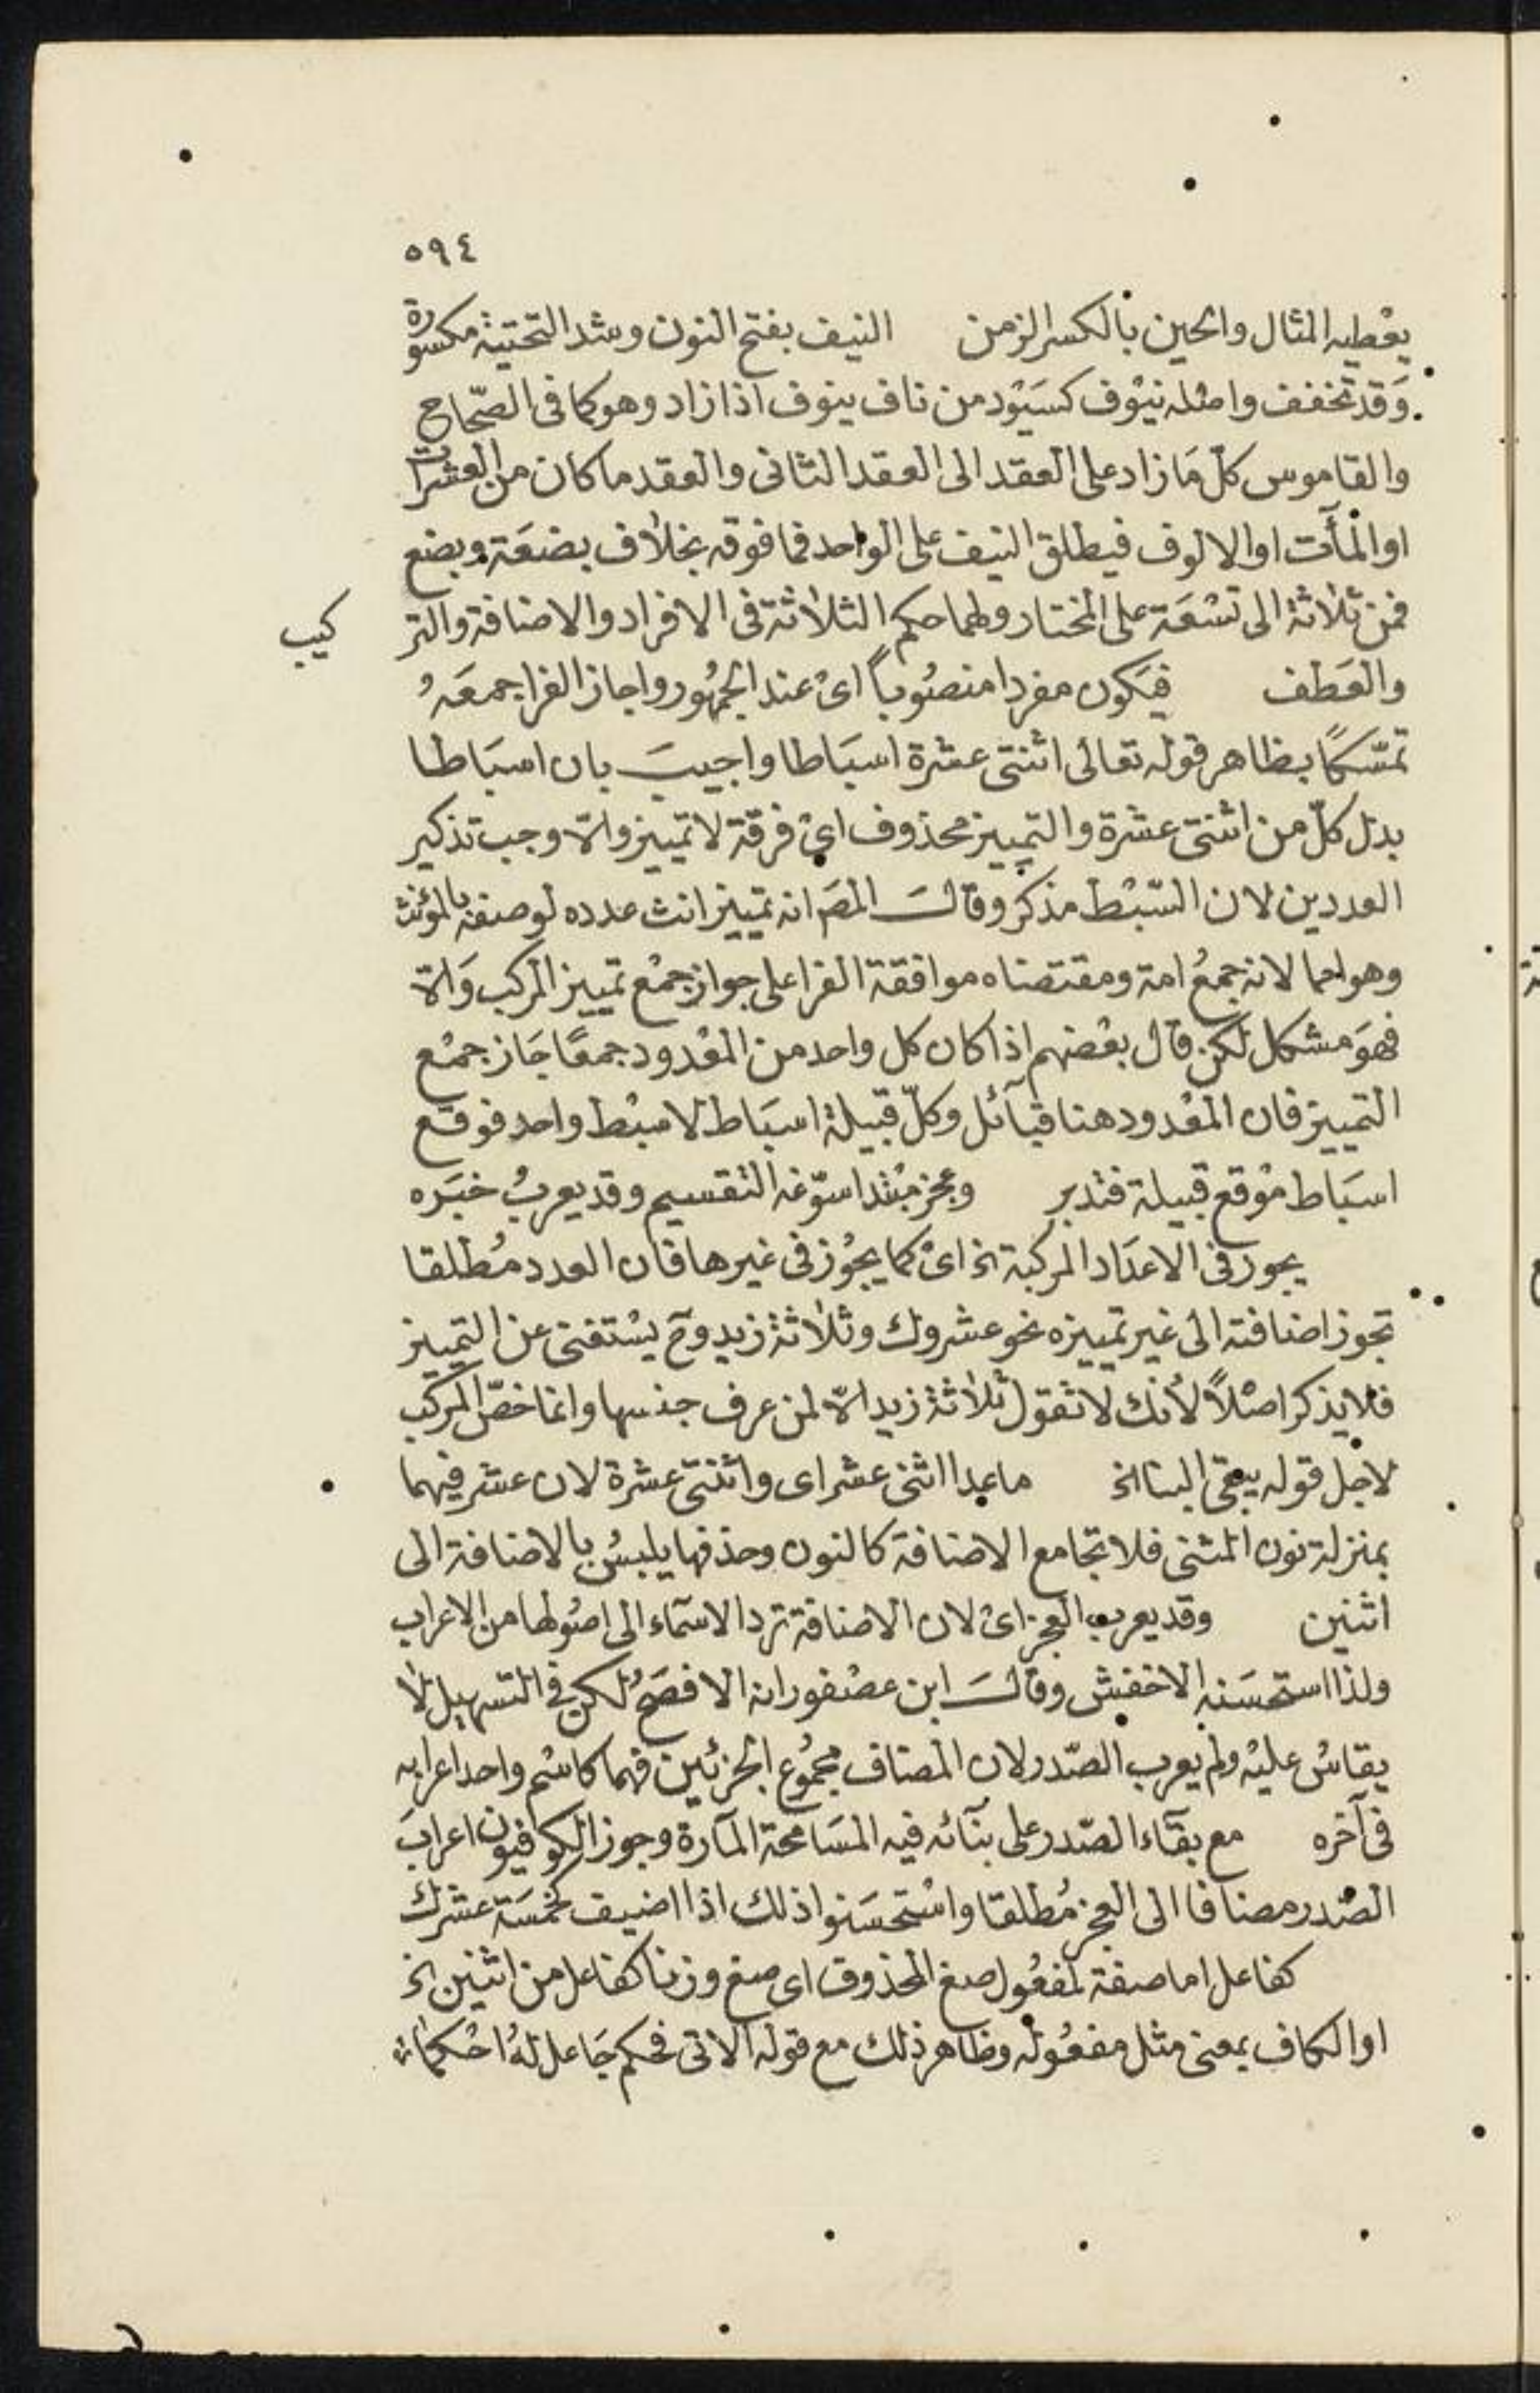 ٥٩٤
يعْطيه المثال والحين بالكسر الزمن النيف بفتح النون وشد التحتية مكسورة
وَقد تخفف واصله نيْوف كسَيْود من ناف ينوف اذا زاد وهو كما فى الصّحاح
والقاموس كلّ مَا زاد على العقد الى العقد الثانى والعقد ما كان من العشرات
او المآت او الالوف فيطلق النيف على الواحد فما فوقه بخلاف بضعَة وبضع
فمن ثلاثة الى تسْعَة على المختار ولهما حكم الثلاثة فى الافراد والاضافة والتر كيب
والعَطف فيَكون مفردا منصُوباً اىْ عند الجمهُور واجاز الفرا جمعَهُ
تمسّكاً بظاهر قوله تعالى اثنتى عشرة اسبَاطا واجيبَ بان اسبَاطا
بدل كلّ من اثنتى عشرة والتمييز محذوف اىْ فرقة لا تمييز والّا وجب تذكير
العددين لان السّبْط مذكر وقالَ المصَ انه تمييز انث عدده لوصفه بالمؤنث
وهو امما لانه جمعُ امة ومقتضاه موافقة الفرا على جواز جمْع تمييز المركب وَالّا
فهوَ مشكل لكن قال بعْضهم اذا كان كل واحد من المعْدود جمعًا جَاز جمْع
التمييز فان المعْدود هنا قبآئل وكلّ قبيلة اسبَاط لا سبْط واحد فوقع
اسبَاط موْقع قبيلة فتدبر وعجز مبْتدا سوّغه التقسيم وقد يعربُ خبَره
يجوز فى الاعدَاد المركبة الخ اىْ كما يجُوز فى غيرها فان العدد مُطلقا
تجوز اضافته الى غير تمييزه نحو عشروك وثلاثة زيد وح يسْتغنى عن التمييز
فلا يذكر اصْلاً لأنك لا تقول ثلاثة زيد الّا لمن عرف جنسها وانما خصّ المركب
لاجل قوله يبقى البنا الخ ما عدا اثنى عشر اى واثنتى عشرة لان عشر فيهما
بمنزلة نون المثنى فلا تجامع الاضافة كالنون وحذفها يلبسُ بالاضافة الى
اثنين وقد يعرب العجز اىْ لان الاضافة ترد الاسمآء الى اصُولها من الاعراب
ولذا استحسَنه الاخفش وقالَ ابن عصْفور انه الافصَحُ لكن فى التسهيل لا
يقاسُ عليْه ولم يعرب الصّدر لان المضاف مجمُوع الجزئين فهما كاسْم واحد اعرابه
فى آخره مع بقآء الصّدر على بنآئه فيه المسَامحة المآرة وجوز الكوفيون اعرابَ
الصّدر مضافا الى العجز مُطلقا واسْتحسَنوا ذلك اذا اضيف كخمسَة عشرك
كفاعل اما صفة لمفعُول صغ المحذوف اى صغ وزنا كفاعل من اثنين الخ
او الكاف بمعنى مثل مفعُوله وظاهر ذلك مع قوله الاتى فحكم جَاعل لهُ احْكما